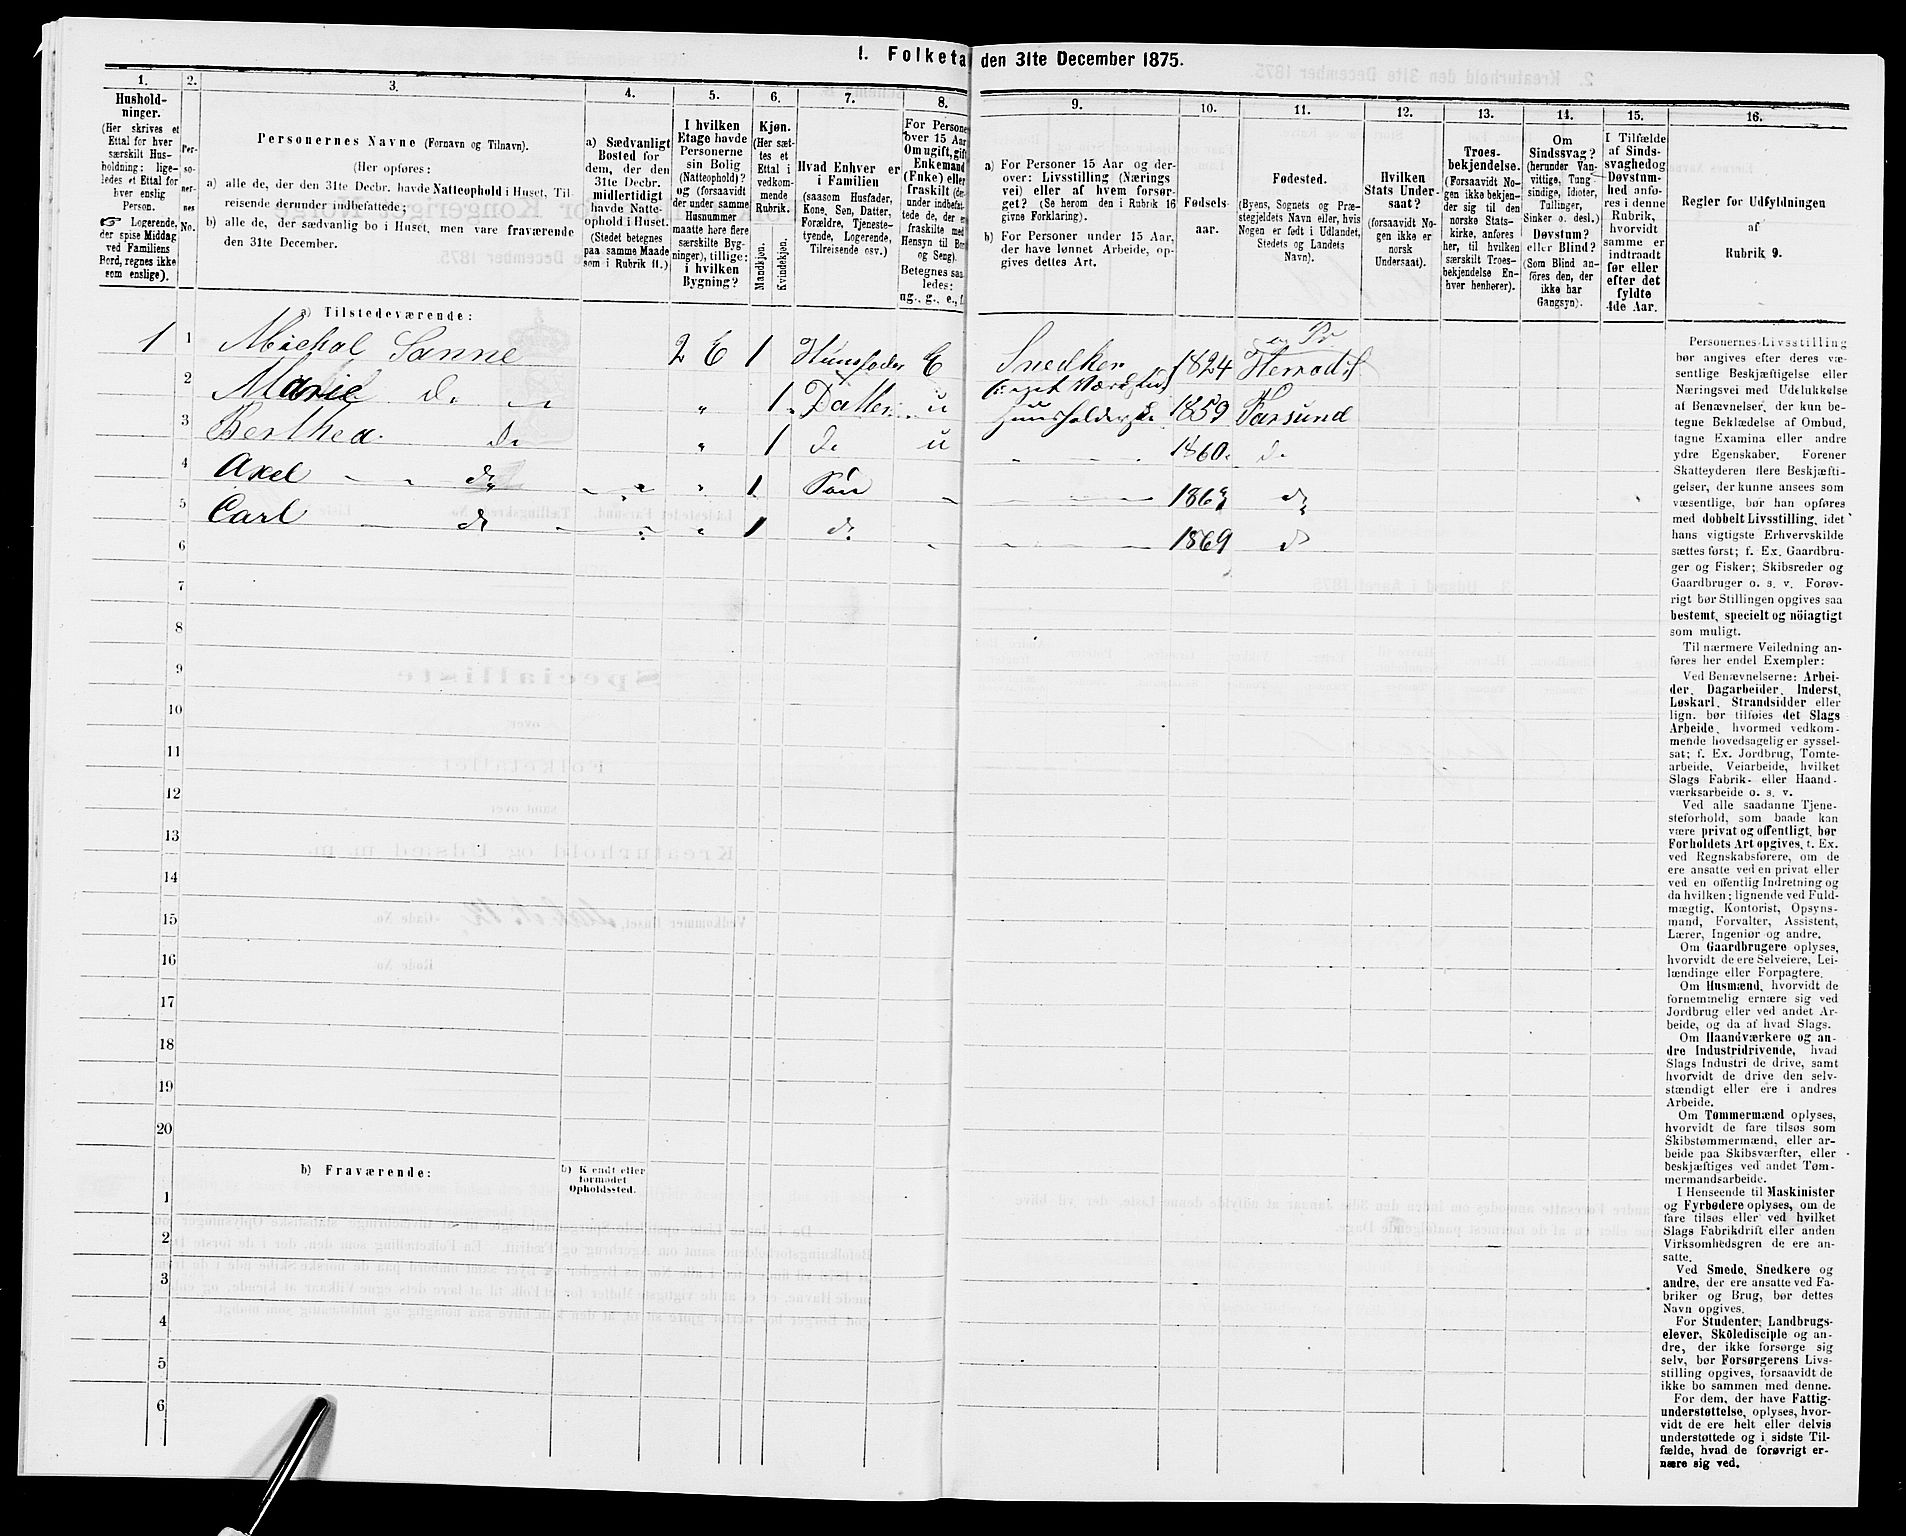 1. Folketa den 31te December 1875.
1. 2. 3. 4. 5. 6. 7. 8. 9. 10. 11. 12. 13. 14. 15. 16.
Hushold-
ninger.
(Her skrives et
Ettal for hver
særskilt Hus-
holdning; lige-
ledes et Ettal for
hver enslig
Person.
☞ Logerende,
der spise Middag
ved Familiens
Bord, regnes ikke
som enslige).
Per-
so-
ner-
nes
No.
Personernes Navne (Fornavn og Tilnavn).
(Her opføres:
a) alle de, der den 31te Decbr. havde Natteophold i Huset, Til-
reisende derunder indbefattede;
b) alle de, der sædvanlig bo i Huset, men vare fraværende
den 31te December.
a) Sædvanligt
Bosted for
dem, der den
31te Decbr.
midlertidigt
havde Natte-
ophold i Huset.
(Stedet betegnes
paa samme Maade
som i Rubrik 11.)
I hvilken
Etage havde
Personerne
sin Bolig
(Natteophold)?
og (forsaavidt
der under samme
Husnummer
maatte høre flere
særskilte Byg-
ninger), tillige:
i hvilken
Bygning?
Kjøn.
(Her sæt-
tes et
Ettal i
vedkom-
mende
Rubrik.
Mandkjøn.
Kvindekjøn.
Hvad Enhver er
i Familien
(saasom Husfader,
Kone, Søn, Datter,
Forældre, Tjeneste-
tyende, Logerende,
Tilreisende osv.)
For Persone
over 15 Aar
Om ugift, gift
Enkemand
(Enke) eller
fraskilt (der-
under indbefat-
tede de, der er
fraskilte med
Hensyn til Bor
og Seng).
Betegnes saa
ledes:
ug., g., e., f.
a) For Personer 15 Aar og der-
over: Livsstilling (Nærings
vei) eller af hvem forsør-
get? (Se herom den i Rubrik 16
givne Forklaring).
b) For Personer under 15 Aar,
der have lønnet Arbeide, op-
gives dettes Art.
Fødsels-
aar.
Fødested.
(Byens, Sognets og Præ-
stegjeldets Navn eller, hvis
Nogen er født i Udlandet,
Stedets og Landets
Navn).
Hvilken
Stats Under-
saat?
(forsaavidt No-
gen ikke er
norsk
Undersaat).
Troes-
bekjendelse.
(Forsaavidt No-
gen ikke bekjen-
der sig til den
norske Stats-
kirke, anføres
her, til hvilken
særskilt Troes-
bekjendelse En-
hver henhører).
Om
Sindssvag?
(herunder Van-
vittige, Tung-
sindige, Idioter,
Tullinger,
Sinker o. desl.)
Døvstum?
eller Blind?
(Som Blind an-
føres den, der
ikke har
Gangsyn).
I Tilfælde
af Sinds-
svaghedog
Døvstum-
hed anfø-
res i denne
Rubrik,
hvorvidt
samme er
indtraadt
før eller
efter det
fyldte
4de Aar.
Regler for Udfyldningen
af
Rubrik 9.
a) Tilstedeværende:
1 1 Michal Sanne 2 E 1 Huusfader E Snedker 1824 Herrad
2 Marie do " 1 Datter u 1859 Farsund
3 Berthea do " 1 do u 1860 do
4 Axel do " 1 Søn do
5 Carl do " 1 do 1869 do
6
7
8
9
10
11
12
13
14
15
16
17
18
19
20
b) Fraværende:
b) Kjendt eller
formodet
Opholdssted.
1
2
3
4
5
6
Personernes Livsstilling
bør angives efter deres væ-
sentlige Beskjæftigelse eller
Næringsvei med Udelukkelse
af Benævnelser, der kun be-
tegne Beklædelse af Ombud,
tagne Examina eller andre
ydre Egenskaber. Forener
Skatteyderen flere Beskjæfti-
gelser, der kunne ansees som
væsentlige, bør han opføres
med dobbelt Livsstilling, idet
hans vigtigste Erhvervskilde
sættes først; f. Ex. Gaardbru-
ger og Fisker; Skibsreder og
Gaardbruger o. s. v. Forøv-
rigt bør Stillingen opgives saa
bestemt, specielt og nöiagtigt
som muligt.
Til nærmere Veiledning an-
føres her endel Exempler:
Ved Benævnelserne: Arbei-
der, Dagarbeider, Inderst,
Løskarl, Strandsidder eller
lign. bør tilføies det Slags
Arbeide, hvormed vedkom-
mende hovedsagelig er syssel-
sat; f. Ex. Jordbrug, Tomte-
arbeide, Veiarbeide, hvilket
Slags Fabrik- eller Haand-
værksarbeide o. s. v.
Ved alle saadanne Tjene-
steforhold, som baade kan
være privat og offentligt, bør
Forholdets Art opgives, t. Ex.
ved Regnskabsførere, om de
ere ansatte ved en privat eller
ved en offentlig Indretning og
da hvilken; lignende ved Fuld-
mægtig, Kontorist, Opsyns-
mand, Forvalter, Assistent,
Lærer, Ingeniør og andre.
Om Gaardbrugere oplyses,
hvorvidt de ere Selveiere, Lei-
lændinge eller Forpagtere.
Om Husmænd, hvorvidt de
fornemmelig ernære sig ved
Jordbrug eller ved andet Ar-
beide, og da af hvad Slags.
Om Haandværkere og an-
dre Industridrivende, hvad
Slags Industri de drive, samt
hvorvidt de drive den selv-
stændigt eller ere i andres
Arbeide.
Om Tømmermænd oplyses,
hvorvidt de fare tilsøs som
Skibstømmermænd, eller ar-
beide paa Skibsværfter, eller
beskjæftiges ved andet Tøm-
mermandsarbeide.
I Henseende til Maskinister
og Fyrbødere oplyses, om de
fare tilsøs eller ved hvilket
Slags Fabrikdrift eller anden
Virksomhedsgren de ere an-
satte.
Ved Smede, Snedkere og
andre, der ere ansatte ved Fa-
briker og Brug, bør dettes
Navn opgives.
For Studenter, Landbrugs-
elever, Skoledisciple og an-
dre, der ikke forsørge sig
selv, bør Forsørgerens Livs-
stilling opgives, forsaavidt de
ikke bo sammen med denne.
For dem, der have Fattig-
understøttelse, oplyses, hvor-
vidt de ere helt eller delvis
understøttede og i sidste Til-
fælde, hvad de forøvrigt er-
nære sig ved.